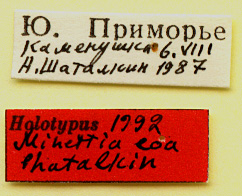 Ю. Приморье
Каменушка 6.VIII
А.Шаталкин 1987
Holotypus 1992
Minettia eoa
Shatalkin